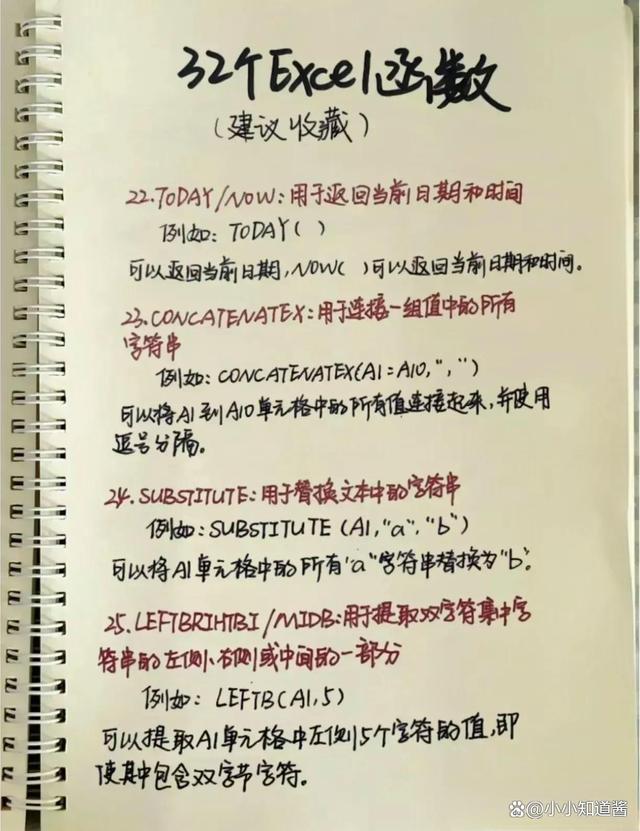 32个Excel函数
（建议收藏）
22.TODAY/NOW：用于返回当前日期和时间
例如：TODAY( )
可以返回当前日期，NOW( )可以返回当前日期和时间。
23.CONCATENATEX：用于连接一组值中的所有
字符串
例如：CONCATENATEX(A1=A10,",")
可以将A1到A10单元格中的所有值连接起来，并使用
逗号分隔。
24.SUBSTITUTE：用于替换文本中的字符串
例如：SUBSTITUTE (A1,"a","b")
可以将A1单元格中的所有"a"字符串替换为"b"。
25.LEFTBRIHTBI/MIDB：用于提取双字符集中字
符串的左侧、右侧或中间的一部分
例如：LEFTB(A1,5)
可以提取A1单元格中左侧5个字符的值，即
使其中包含双字节字符。
小小知道酱